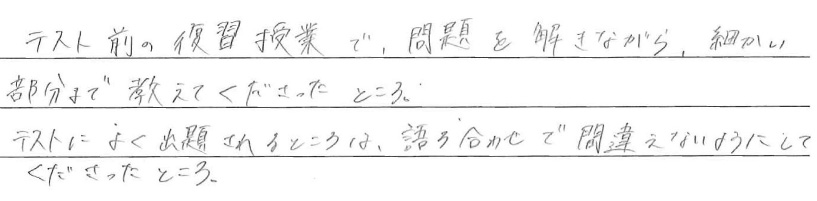 テスト前の復習授業で、問題を解きながら、細かい
部分まで教えてくださったところ。
テストによく出題されるところは、語ろ合わせで間違えないようにして
くださったところ。